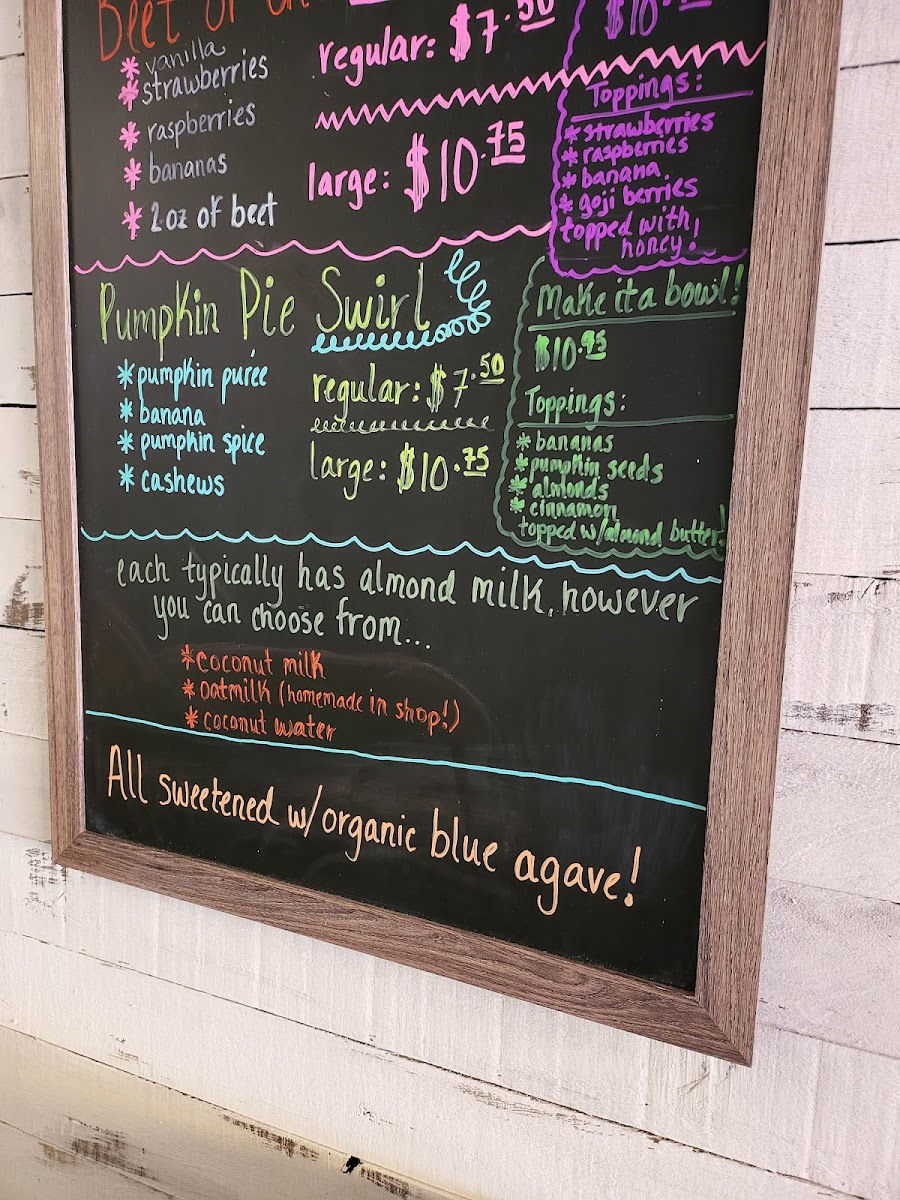 Beet or
* vanilla
* strawberries
* raspberries
* bananas
* 2oz of beet
regular: $7.50
large: $10.75
$10.
Toppings:
* strawberries
* raspberries
* banana
* goji berries
topped with
honey!
Pumpkin Pie Swirl
* pumpkin purée
* banana
* pumpkin spice
* cashews
regular: $7.50
large: $10.75
Make it a bowl!
$10.95
Toppings:
* bananas
* pumpkin seeds
* almonds
* cinnamon
topped w/almond butter!
each typically has almond milk, however
you can choose from...
* coconut milk
* oatmilk (homemade in shop!)
* coconut water
All sweetened w/organic blue agave!